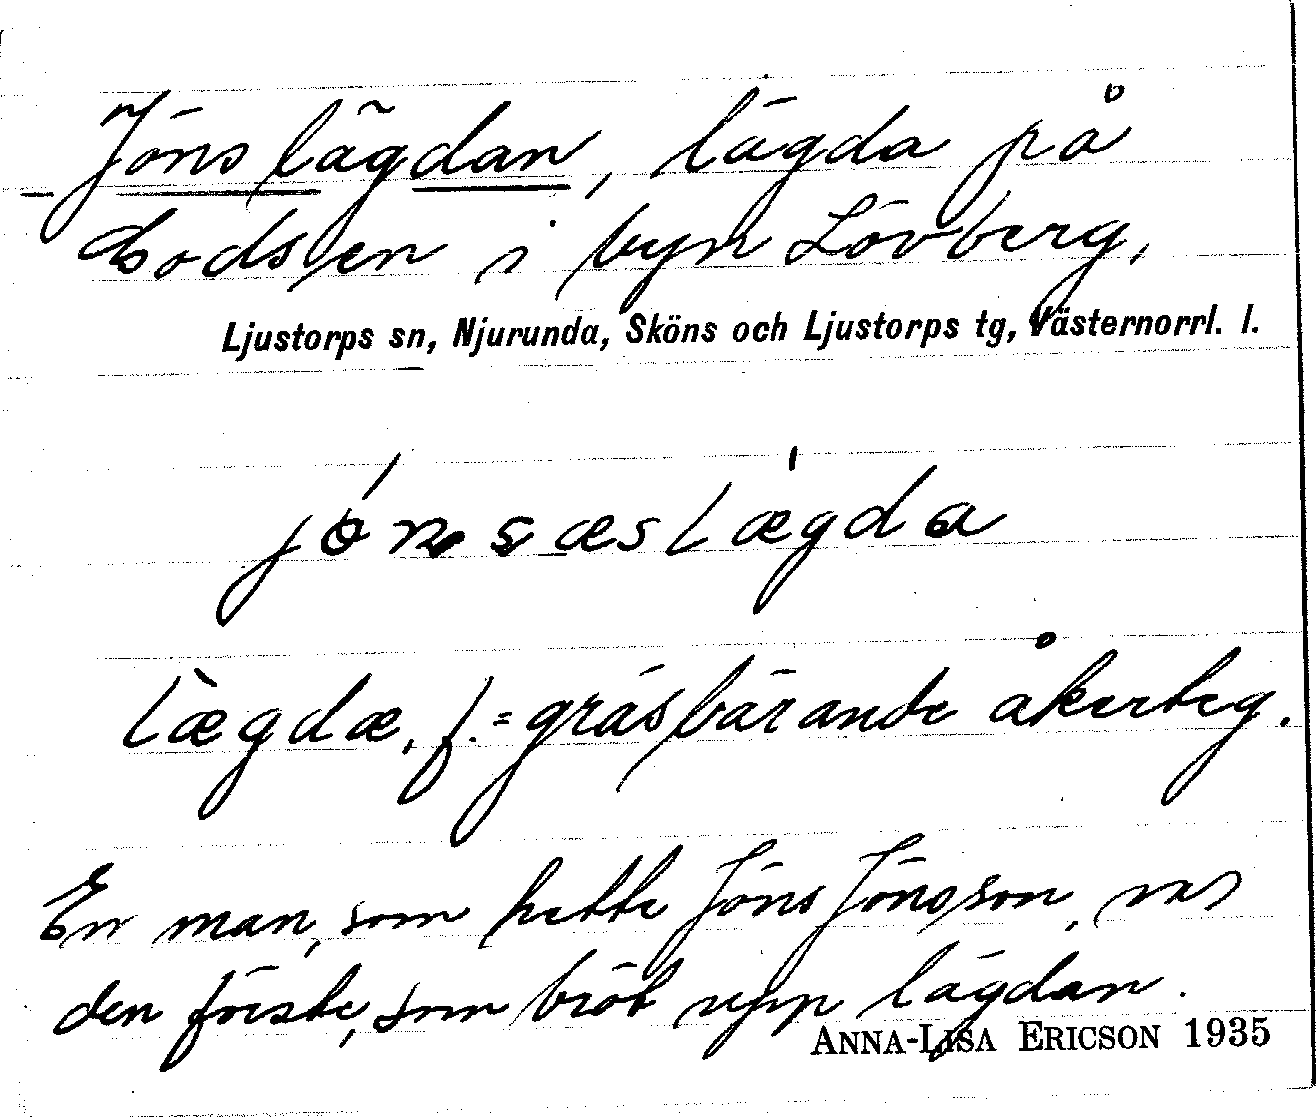 Jöns lägdan, lägda på
Lodsjen i byn Lövberg,
Ljustorps sn, Njurunda, Sköns och Ljustorps tg, Västernorrl. l.
lægda
lægdæ, f. = gräsbärande åkerteg.
En man, som hette Jöns Jönsson, var
den förste, som bröt upp lägdan.
ANNA-LISA ERICSON 1935